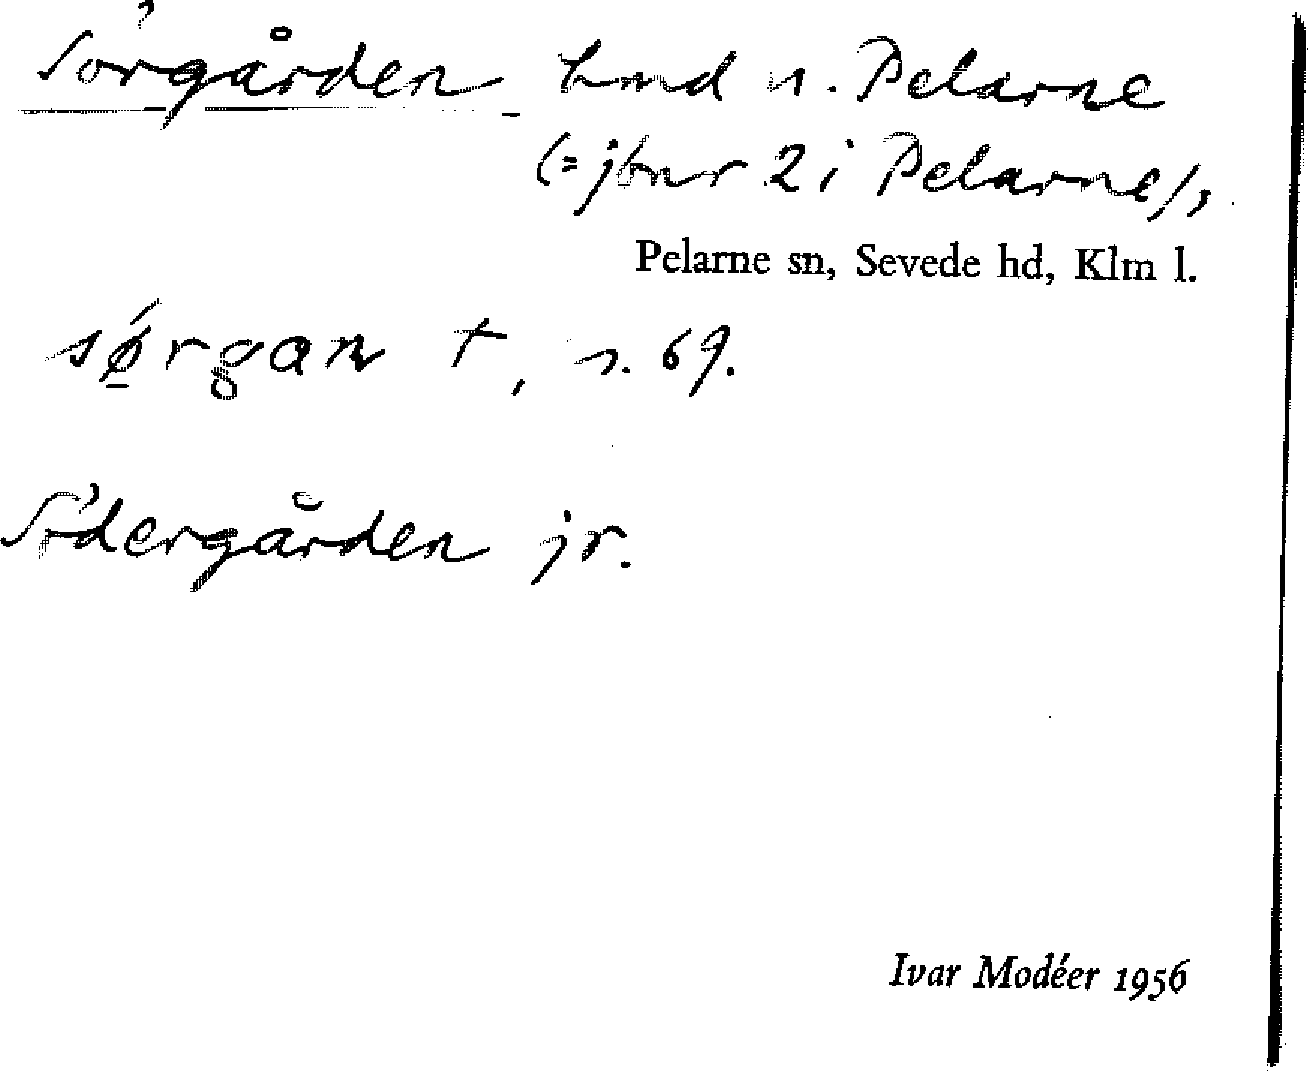 Sörgården hmd n. Pelarne
(= jbnr 2 i Pelarne),
Pelarne sn, Sevede hd, Klm l.
sǿ̱rgan t, s. 69.
Södergården jr.
Ivar Modéer 1956